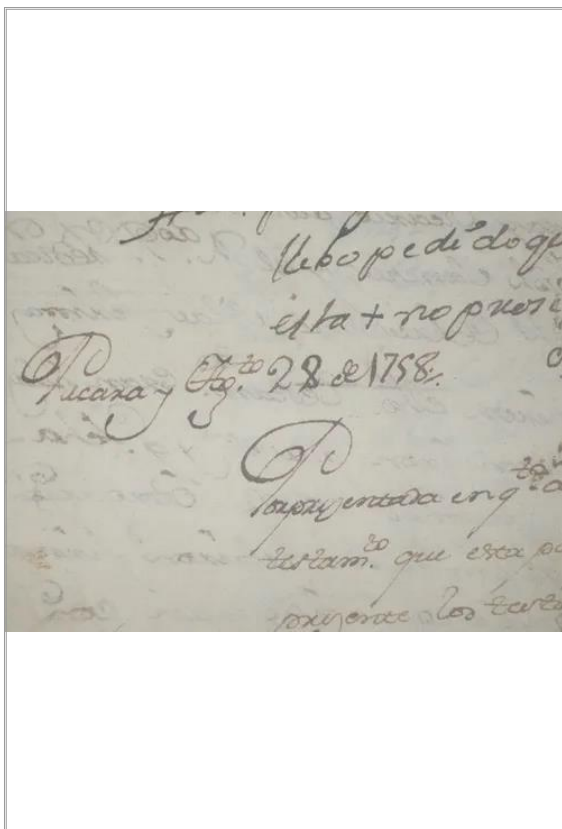 llebo pedido q
esta + no pue
Pucara y Ag.to 28 de 1758.
Por presentada en q.to a
testam.to que esta p
presente los test